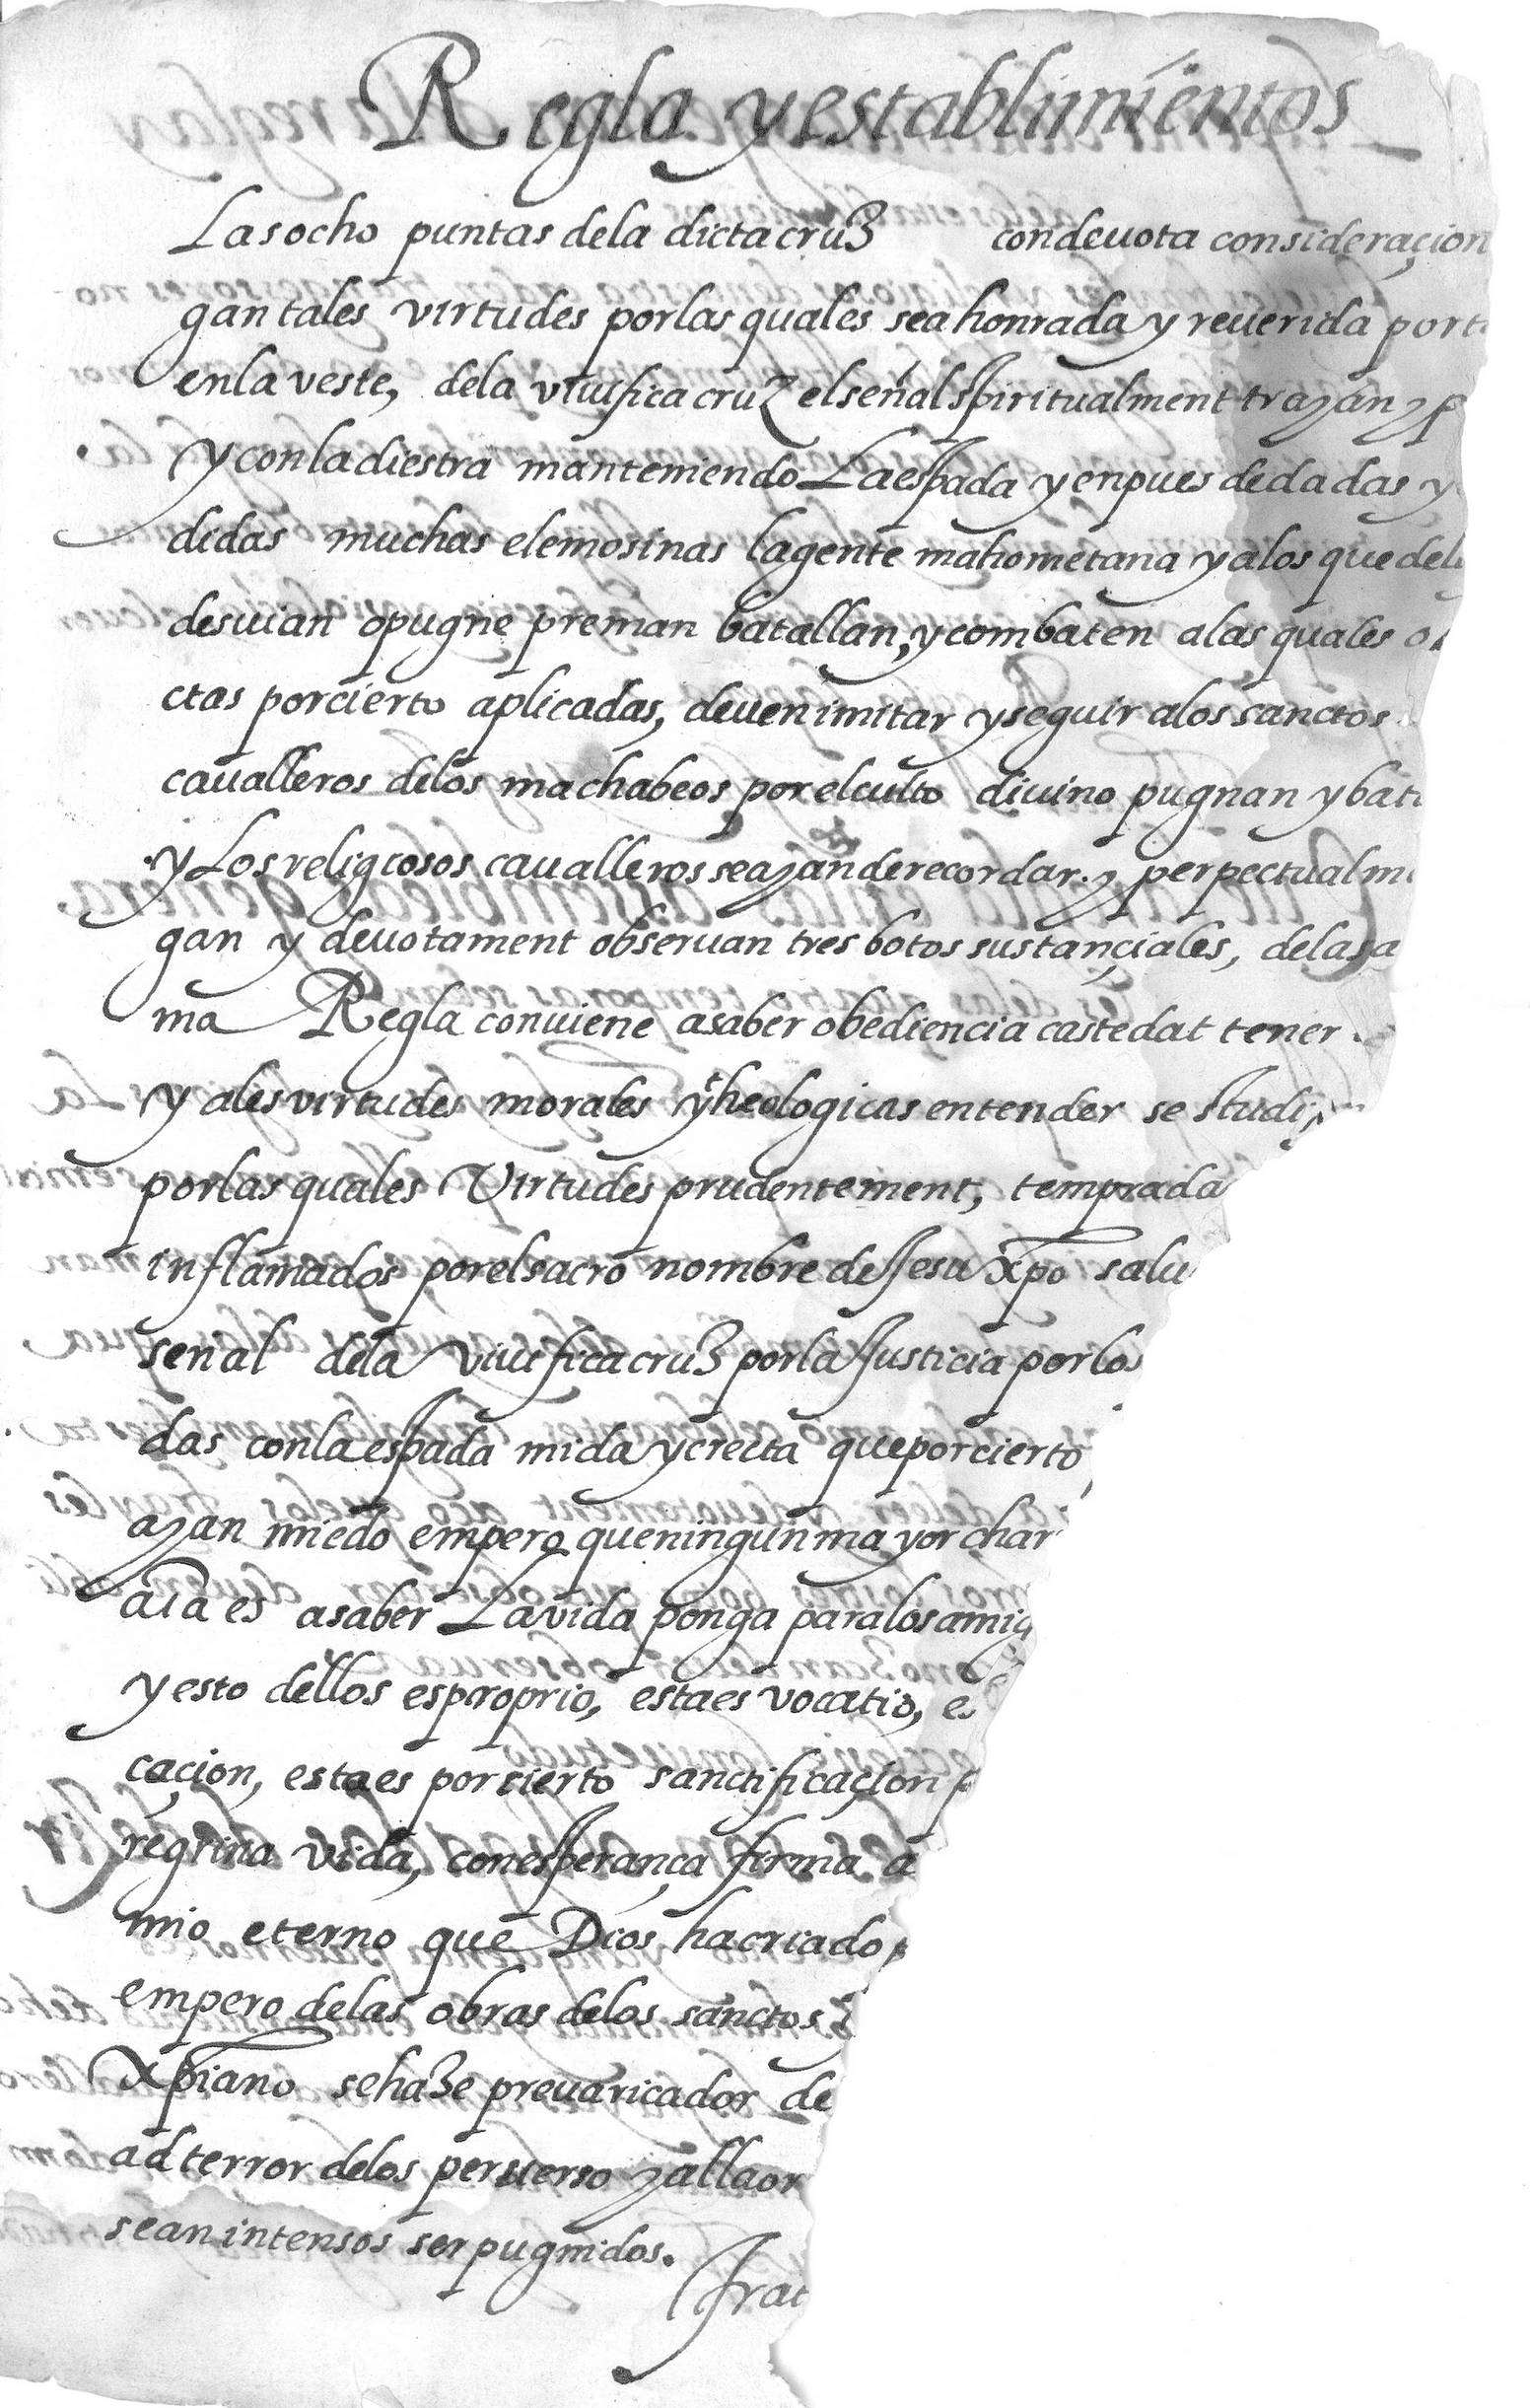 Regla y establimientos
Las ocho puntas dela dicta cruz con deuota consideraçion
gan tales virtudes por las quales sea honrada y reuerida port
en la veste, dela viuifica cruz el señal spiritualment trajan y p
y con la diestra manteniendo La espada y enpues de dadas y
didas muchas elemosinas la gente mahometana y a los que del
desuian opugne preman batallan, y combaten a las quales
ctas por cierto aplicadas, deuen imitar y seguir a los sanctos
caualleros delos machabeos por el culto diuino pugnan y bat
y Los religiosos caualleros se ajan de recordar. y perpectualm
gan y deuotament obseruan tres botos sustançiales, de la sa
ma Regla conuiene a saber obediencia castedat tener
y ales virtudes morales y theologicas entender se studi
por las quales Virtudes prudentement, temprada
inflamados por el sacro nombre de Jesu Xpo salu
senal dela Viuifica cruz por la Justicia por los
das con la espada mida y crecta que por cierto
ajan miedo empero que ningun mayor char
aia es a saber La vida ponga para los amig
y esto dellos es proprio, esta es vocatio, e
caçion, esta es por cierto sanctificaçion p
regrina vida, con esperança firma a
mio eterno que Dios ha criado
empero delas obras delos sanctos
Xpiano se haze preuaricador de
ad terror delos peruerso y alla or
sean intensos ser pugnidos.
frat